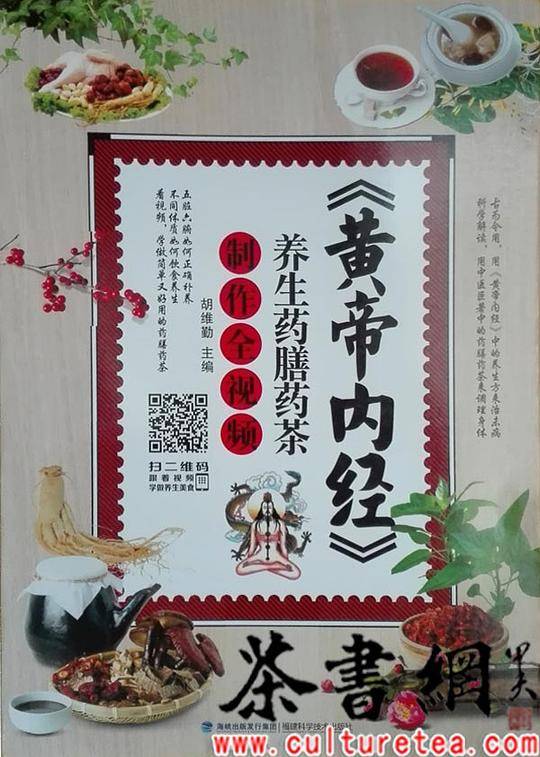 古为今用，用《黄帝内经》中的养生方来治未病
科学解读，用中医医案中的药膳药茶来调理身体
《黄帝内经》
养生药膳药茶
制作全视频
胡维勤 主编
五脏六腑如何正确补养
不同体质如何饮食养生
看视频，学做简单又好用的药膳药茶
扫二维码
跟着视频
学做养生美食
海峡出版发行集团
福建科学技术出版社
茶書網
www.culturetea.com